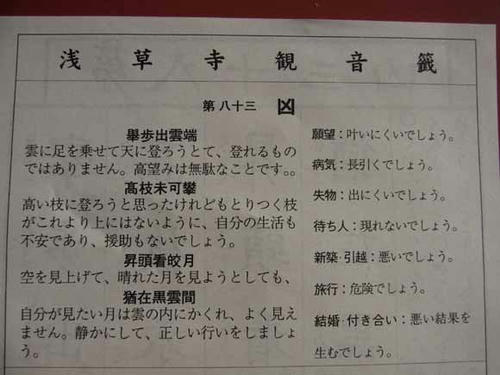 浅草寺観音籤
第八十三 凶
擧歩出雲端
雲に足を乗せて天に登ろうとて、登れるもの
ではありません。高望みは無駄なことです。。
髙枝未可攀
高い枝に登ろうと思ったけれどもとりつく枝
がこれより上にはないように、自分の生活も
不安であり、援助もないでしょう。
昇頭看皎月
空を見上げて、晴れた月を見ようとしても、
猶在黒雲間
自分が見たい月は雲の内にかくれ、よく見え
ません。静かにして、正しい行いをしましょ
う。
願望：叶いにくいでしょう。
病気：長引くでしょう。
失物：出にくいでしょう。
待ち人：現れないでしょう。
新築・引越：悪いでしょう。
旅行：危険でしょう。
結婚・付き合い：悪い結果を
生むでしょう。